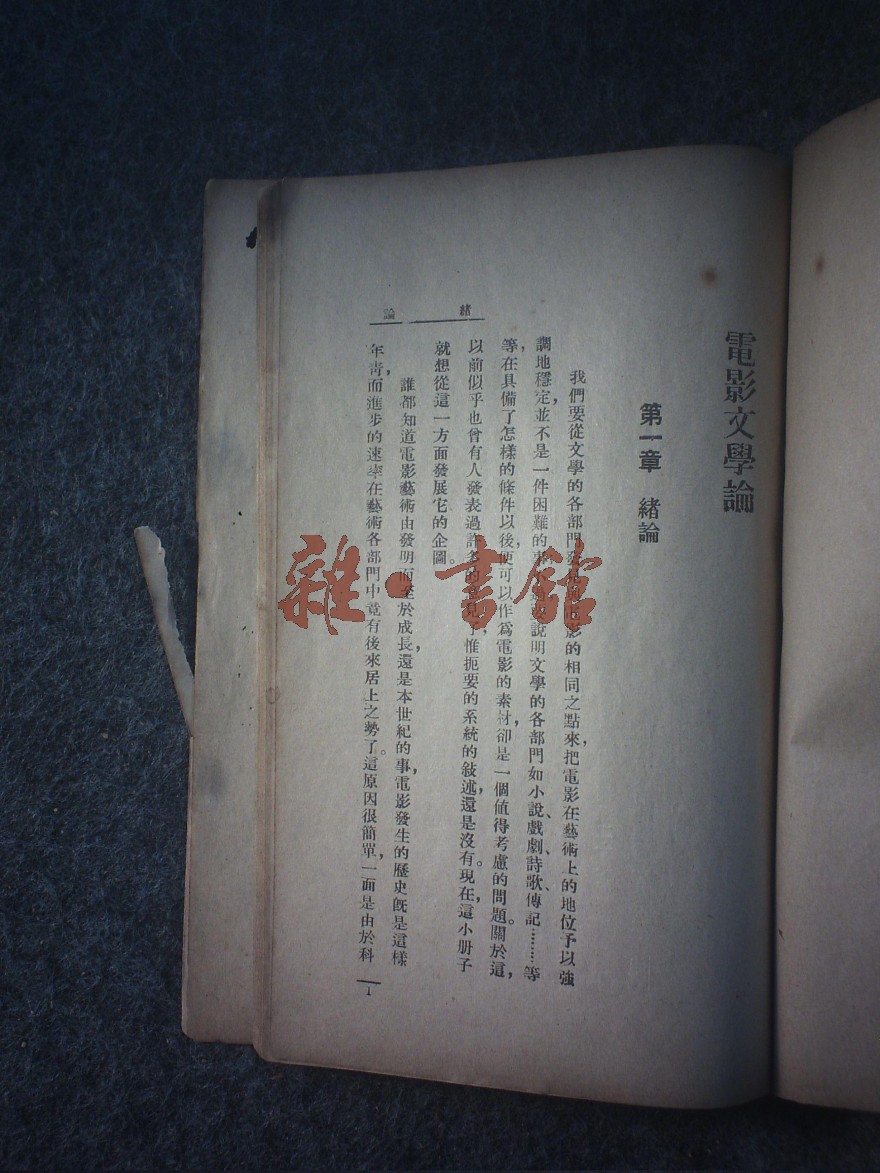 電影文學論
第一章 緒論
我們要從文學的各部門 影的相同之點來,把電影在藝術上的地位予以強
調地穩定,並不是一件困難的事 說明文學的各部門如小說、戲劇、詩歌、傳記………等
等,在具備了怎樣的條件以後,便可以作爲電影的素材,卻是一個値得考慮的問題。關於這,
以前似乎也曾有人發表過許多的 惟扼要的系統的敍述,還是沒有。現在,這小册子
就想從這一方面發展它的企圖。
誰都知道電影藝術由發明而至於成長,還是本世紀的事,電影發生的歷史旣是這樣
年靑,而進步的速率在藝術各部門中竟有後來居上之勢了。這原因很簡單,一面是由於科
緒論
1
雜·書館